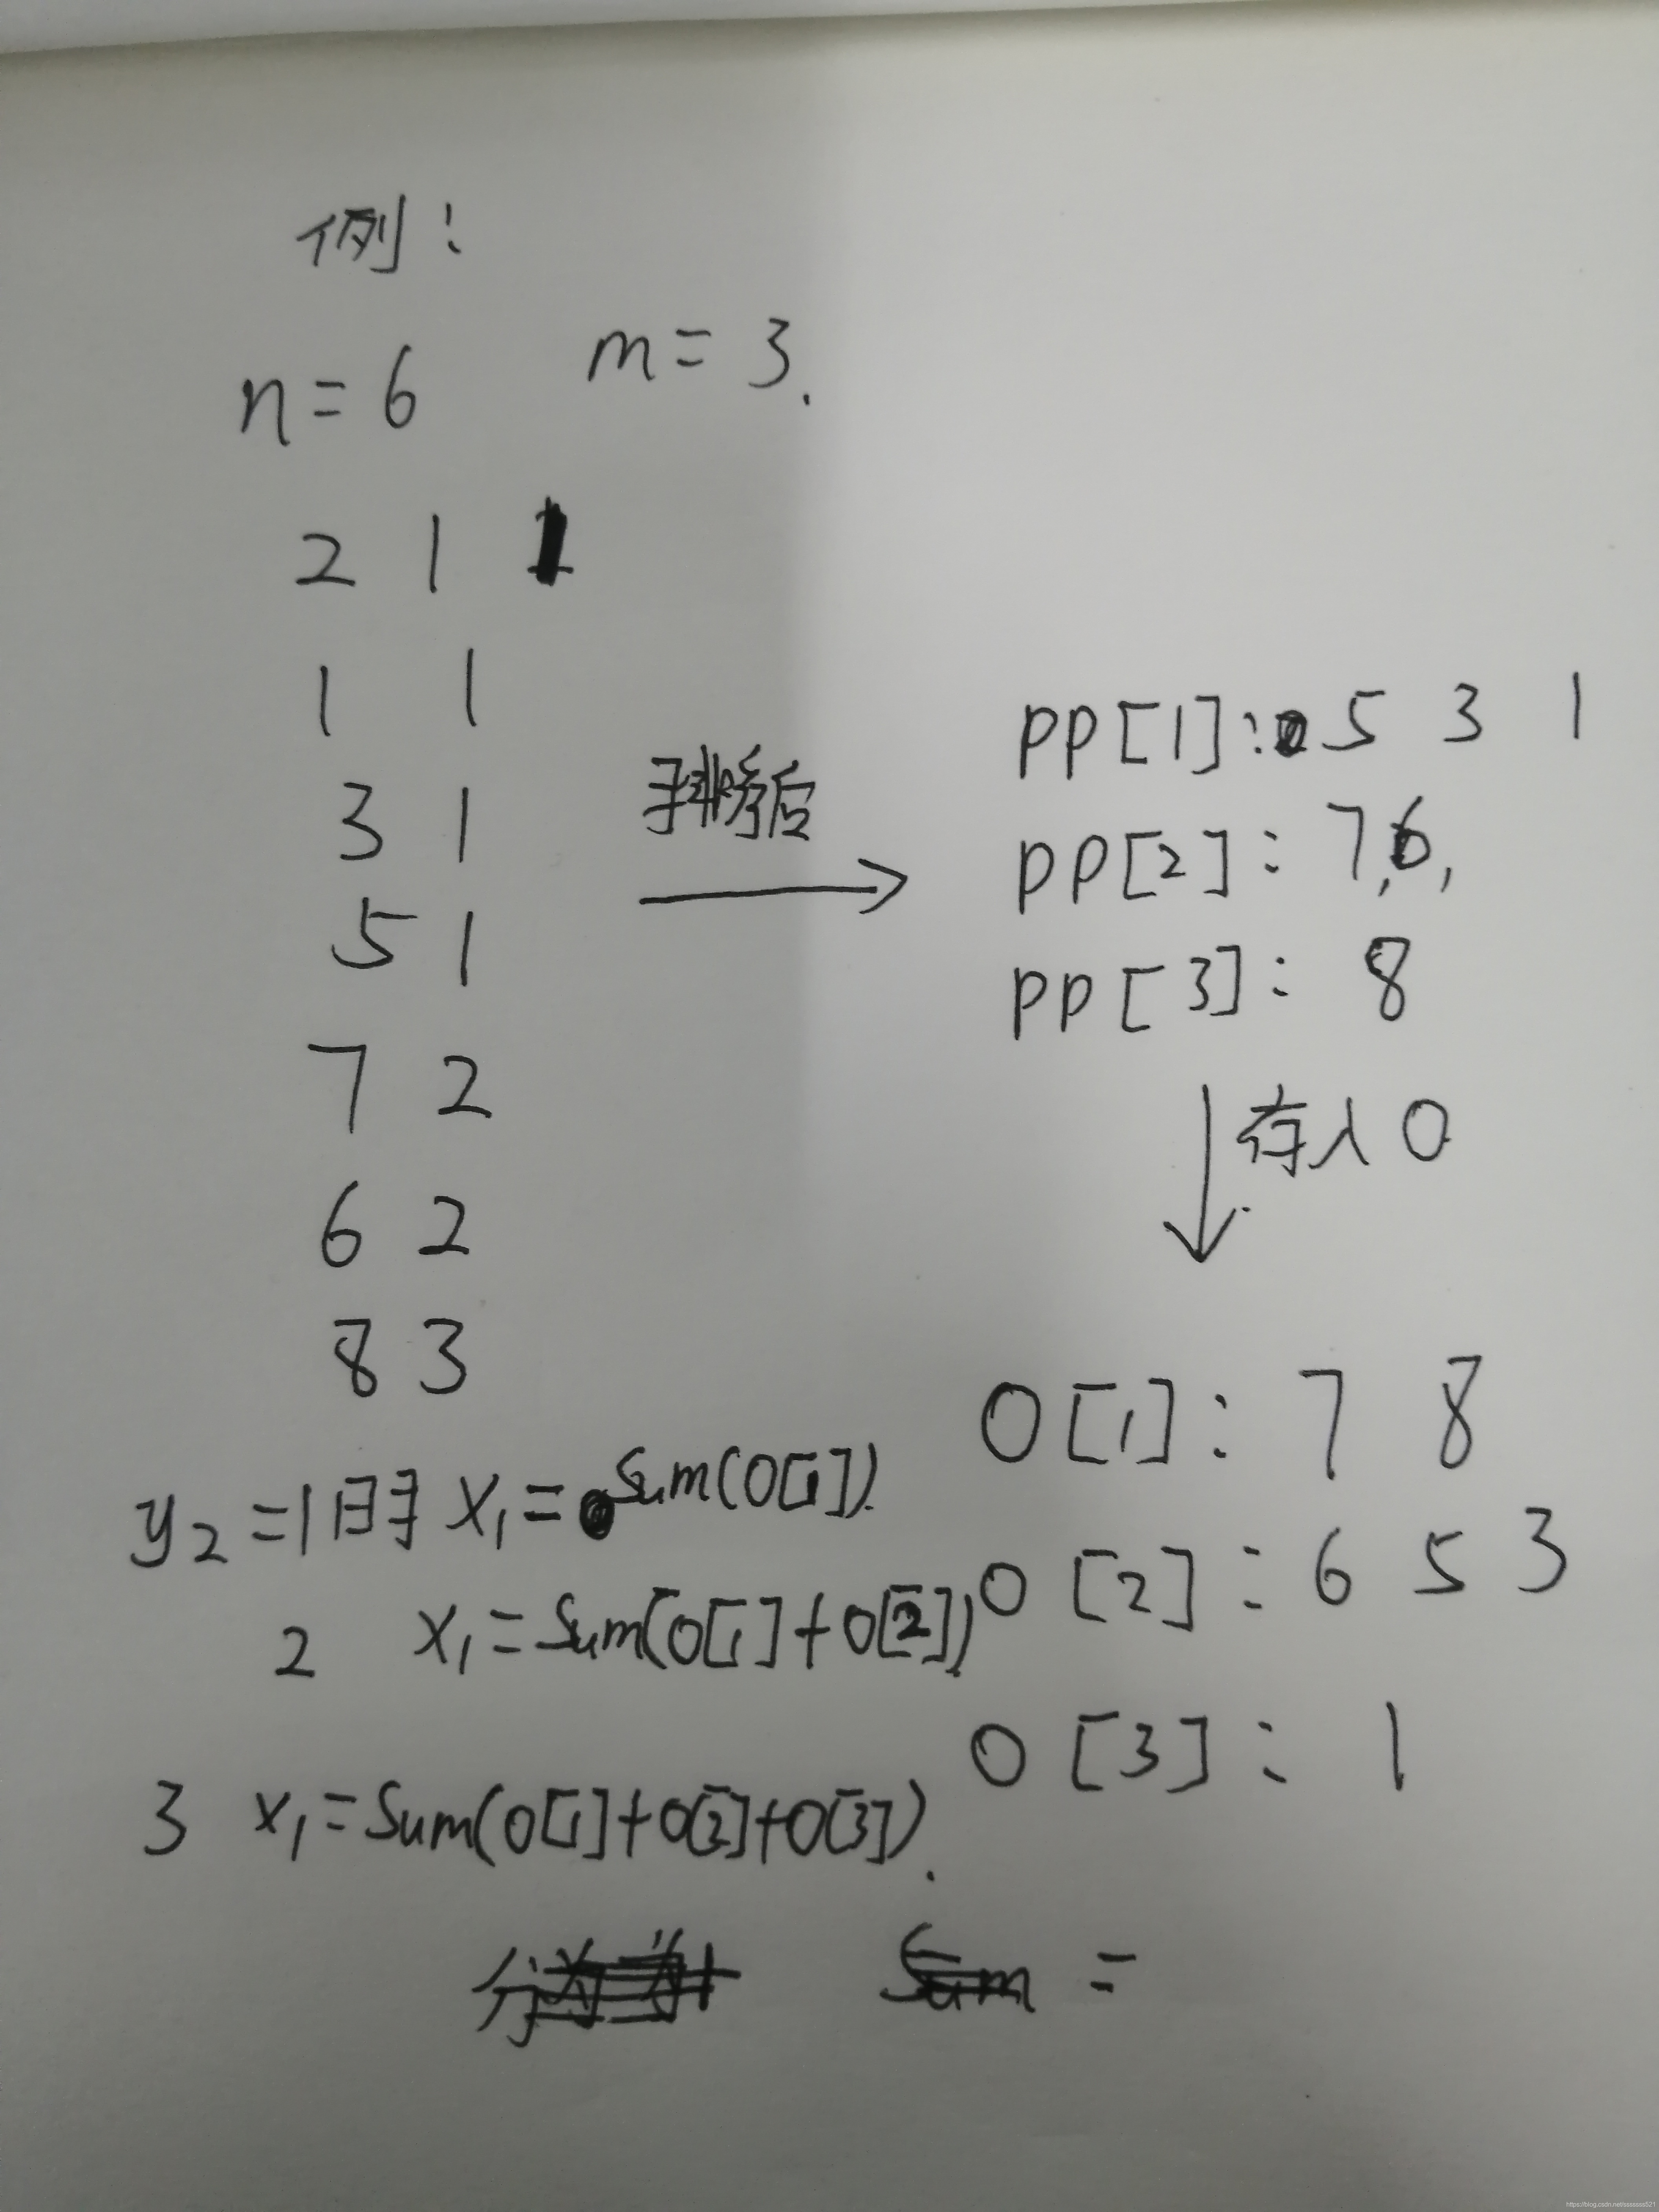 例:
n=6 m=3.
2 1 1
1 1
3 1
5 1
7 2
6 2
8 3
排序后
pp[1]: 5 3 1
pp[2]: 7,6,
pp[3]: 8
存入O
O[1]: 7 8
O[2]: 6 5 3
O[3]: 1
y2=1时 x1=Sum(O[1]).
2 x1=Sum(O[1]+O[2])
3 x1=Sum(O[1]+O[2]+O[3]).
分 Sum =
https://blog.csdn.net/sssssss521